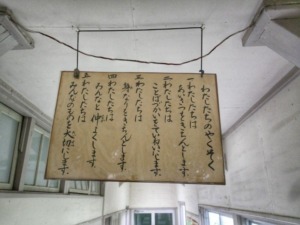 わたしたちのやくそく
一わたしたちは
あいさつをきちんとします。
二わたしたちは
ことばづかいをていねいにします。
三わたしたちは
身なりをきちんとします。
四わたしたちは
みんなと仲よくします。
五わたしたちは
みんなのものを大切にします。